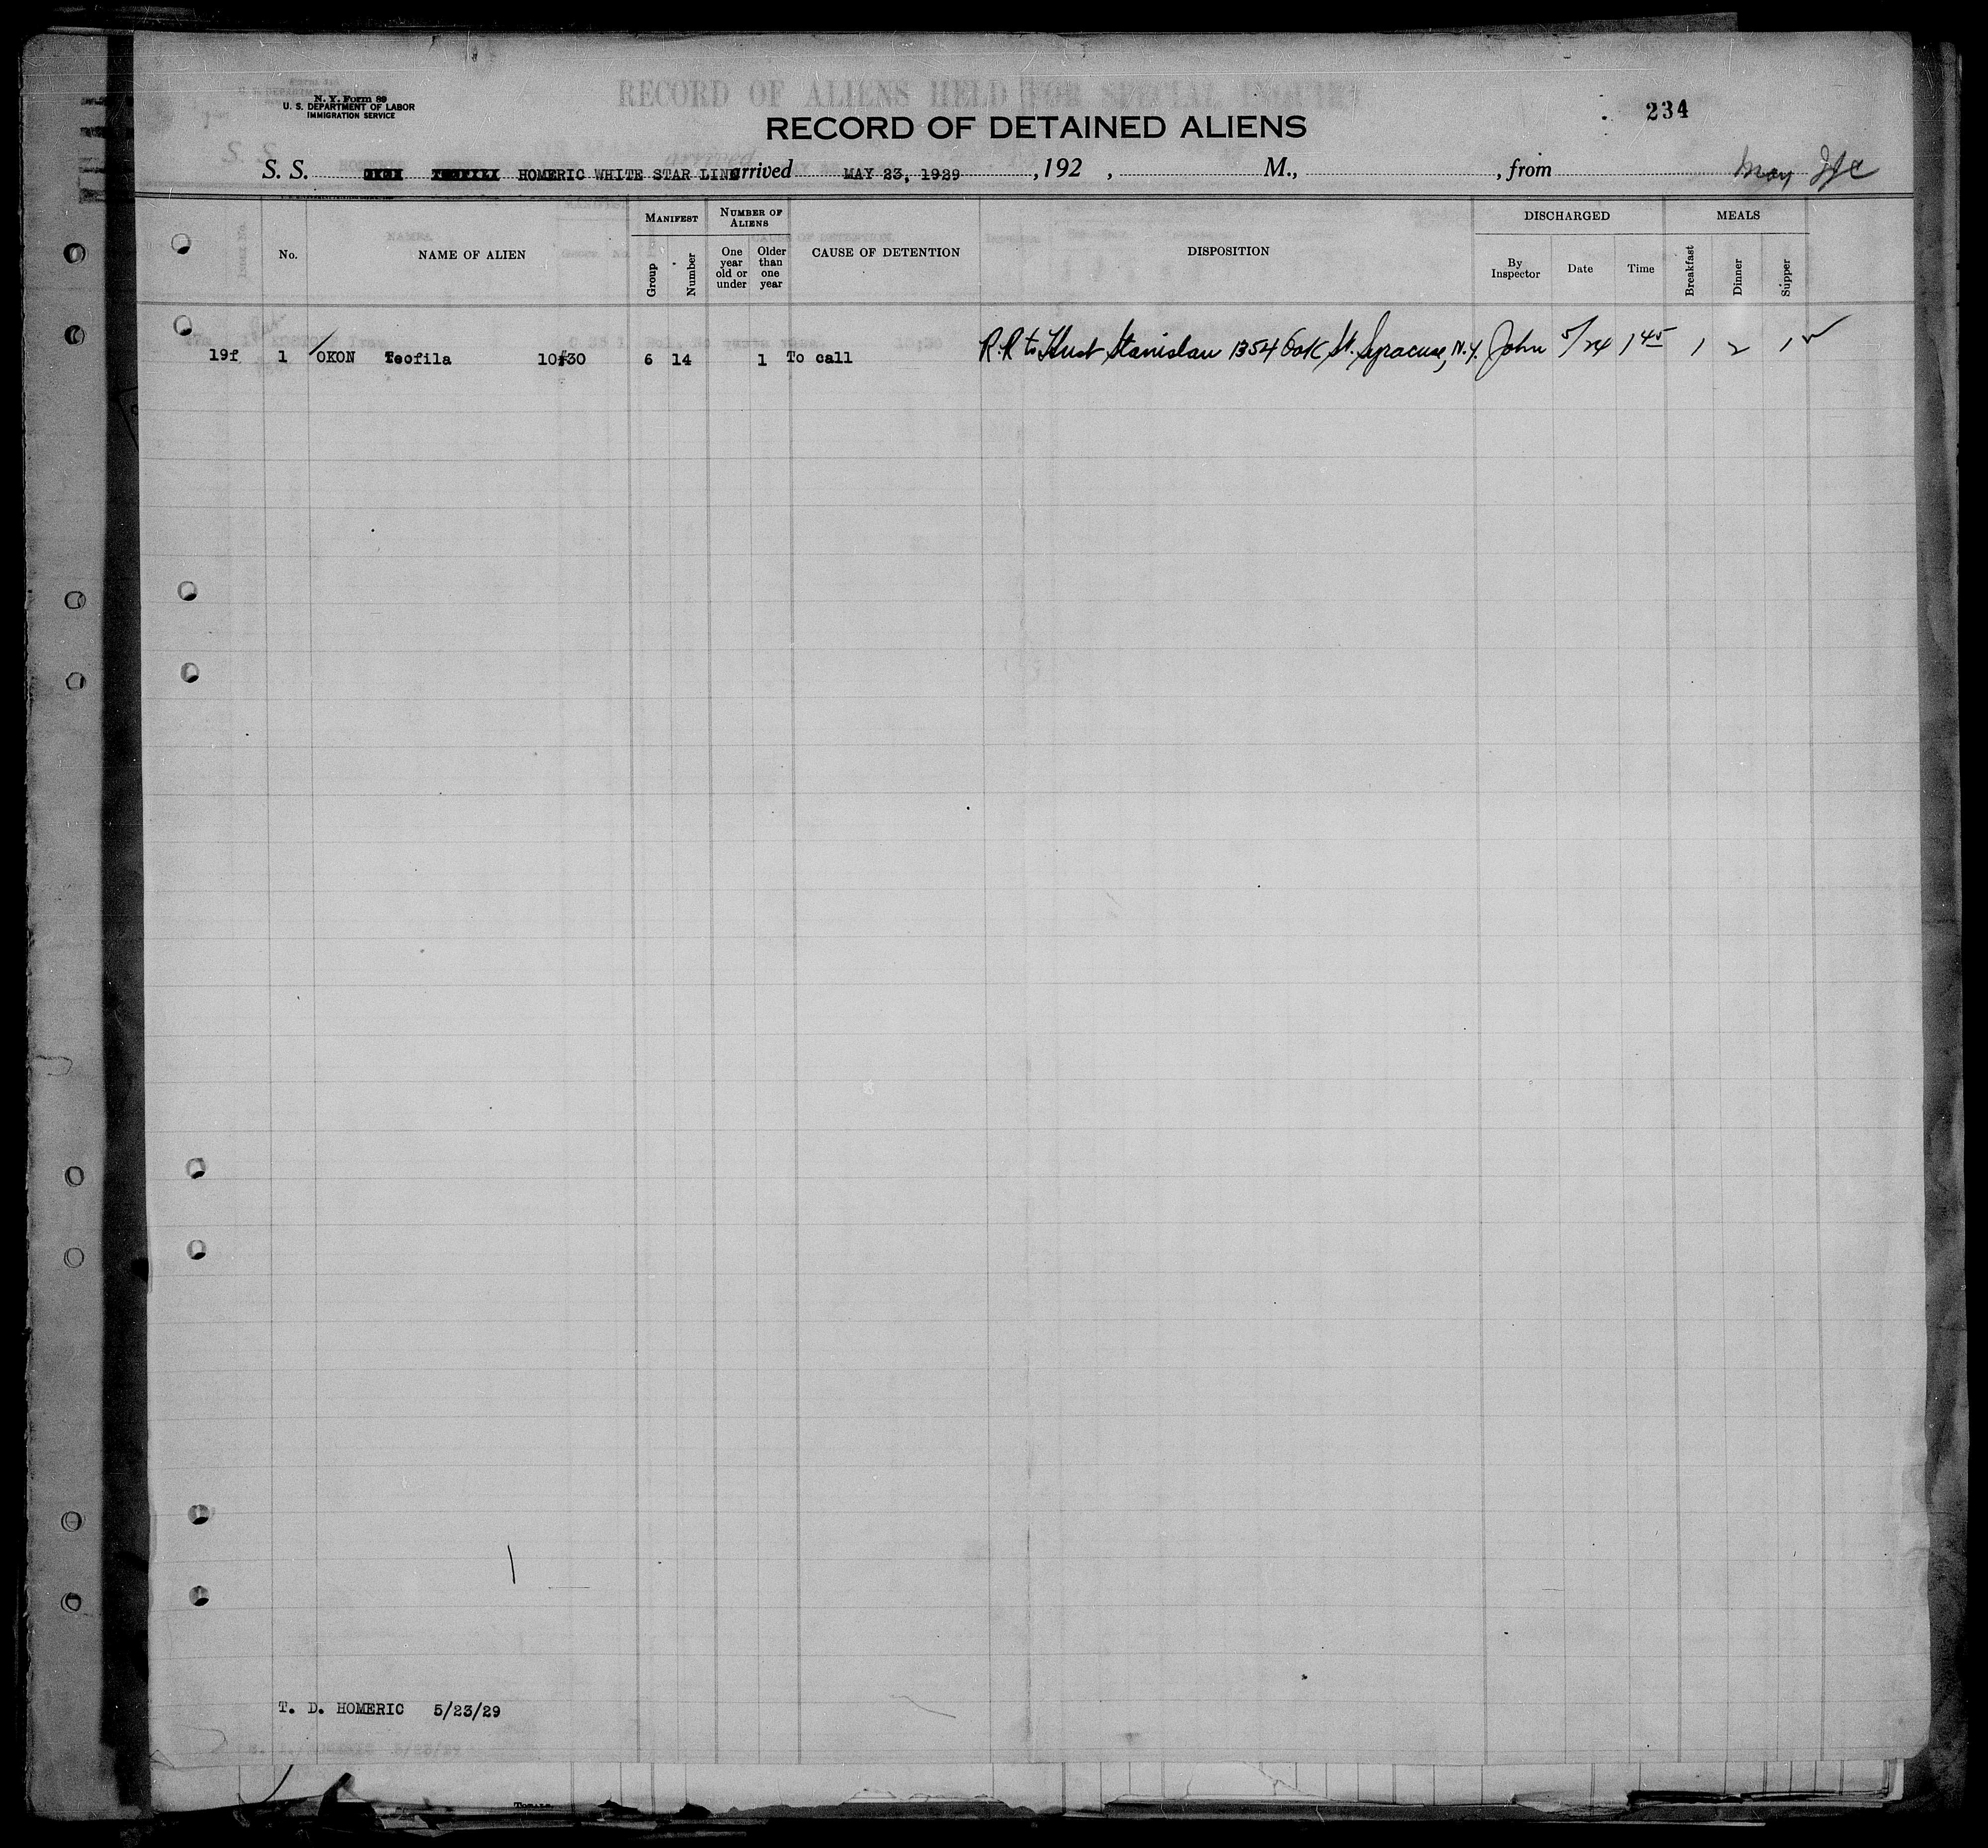 N. Y. Form 89
U. S. DEPARTMENT OF LABOR
IMMIGRATION SERVICE
RECORD OF ALIENS HELD FOR SPECIAL INQUIRY
234
RECORD OF DETAINED ALIENS
S. S. HOMERIC WHITE STAR LINE arrived MAY 23, 1929 , 192 , M., , from
No. NAME OF ALIEN MANIFEST Group Number NUMBER OF ALIENS One year old or under Older than one year CAUSE OF DETENTION DISPOSITION DISCHARGED By Inspector Date Time MEALS Breakfast Dinner Supper
19f 1 OKON Teofila 10:30 6 14 1 To call R.R to Husb Stanislau 1354 Oak St. Syracuse, N.Y. John 5/24 1 45 1 2 1
T. D. HOMERIC 5/23/29
TOTALS